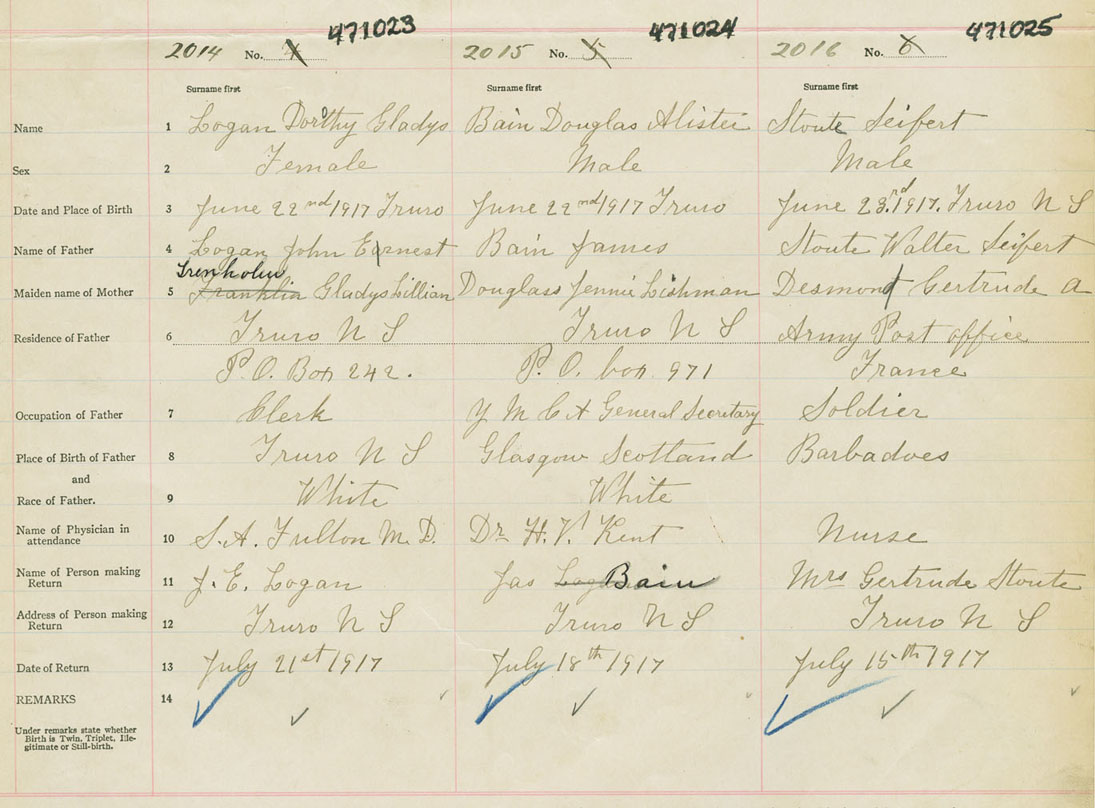 471023 471024 471025
2014 No. 4 2015 No. 5 2016 No. 6
Surname first Surname first Surname first
Name 1 Logan Dorothy Gladys Bain Douglas Alister Stoute Seifert
Sex 2 Female Male Male
Date and Place of Birth 3 June 22nd 1917 Truro June 22nd 1917 Truro June 23rd 1917. Truro N S
Name of Father 4 Logan John Earnest Bain James Stoute Walter Seifert
Trenholm
Maiden name of Mother 5 Franklin Gladys Lillian Douglass Jennie Lishman Desmond Gertrude A
Residence of Father 6 Truro N S Truro N S Army Post office
P.O. Box 242. P. O. box 971 France
Occupation of Father 7 Clerk Y M C A General Secretary Soldier
Place of Birth of Father 8 Truro N S Glasgow Scotland Barbadoes
and
Race of Father. 9 White White
Name of Physician in
attendance 10 S. A. Fulton M. D. Dr H. V. Kent Nurse
Name of Person making
Return 11 J. E. Logan Jas Bain Mrs Gertrude Stoute
Address of Person making
Return 12 Truro N S Truro N S Truro N S
Date of Return 13 July 21st 1917 July 18th 1917 July 15th 1917
REMARKS 14
Under remarks state whether
Birth is Twin, Triplet, Ille-
gitimate or Still-birth.